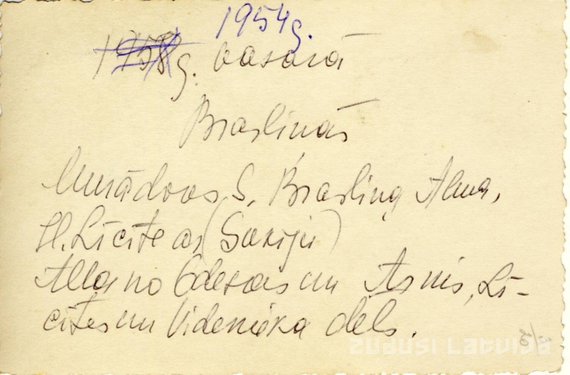 1954g.
1958g. vasarā
Brasliņās
S. Brasliņa Alma,
H. Līcīte as (Sarijū)
Alla no Odesas un Asnis, Lī-
cītes un Videnieka dēls.
ZUDUSI LATVIJA